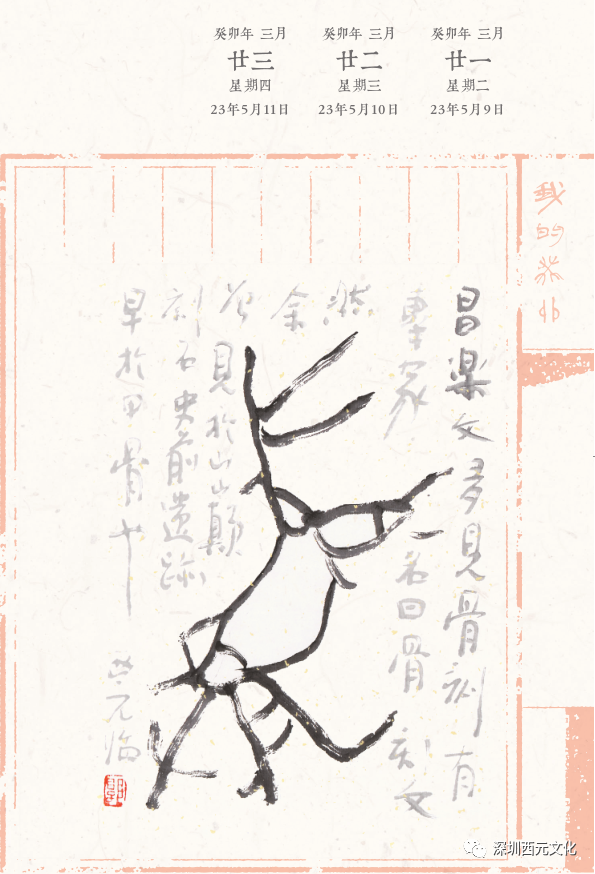 癸卯年 三月
廿一
星期二
23年5月9日
癸卯年 三月
廿二
星期三
23年5月10日
癸卯年 三月
廿三
星期四
23年5月11日
我的
昌樂文多見骨刻有
專家名曰骨刻文
然
余
曾見於山山顛
刻石史前遺跡
早於甲骨
元临
深圳西元文化